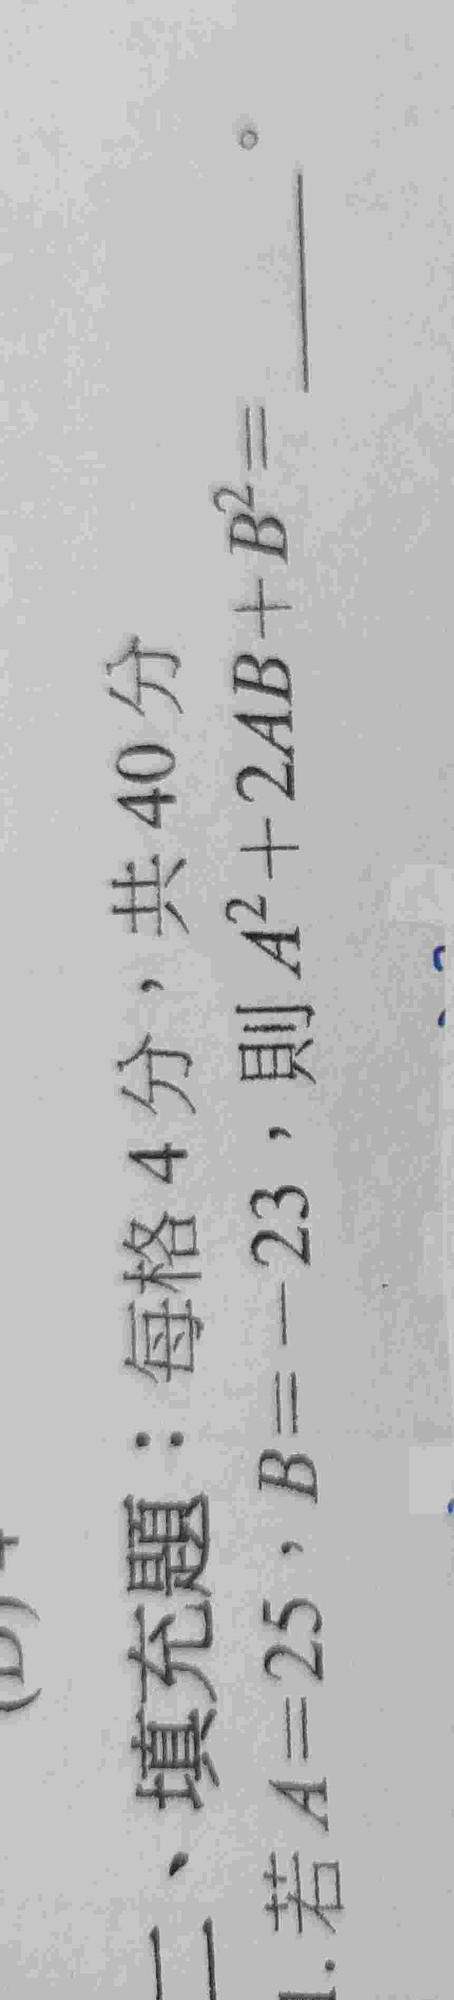 二、填充題：每格 4 分，共 40 分
1. 若 A=25，B=−23，則 A²+2AB+B²=＿＿＿。